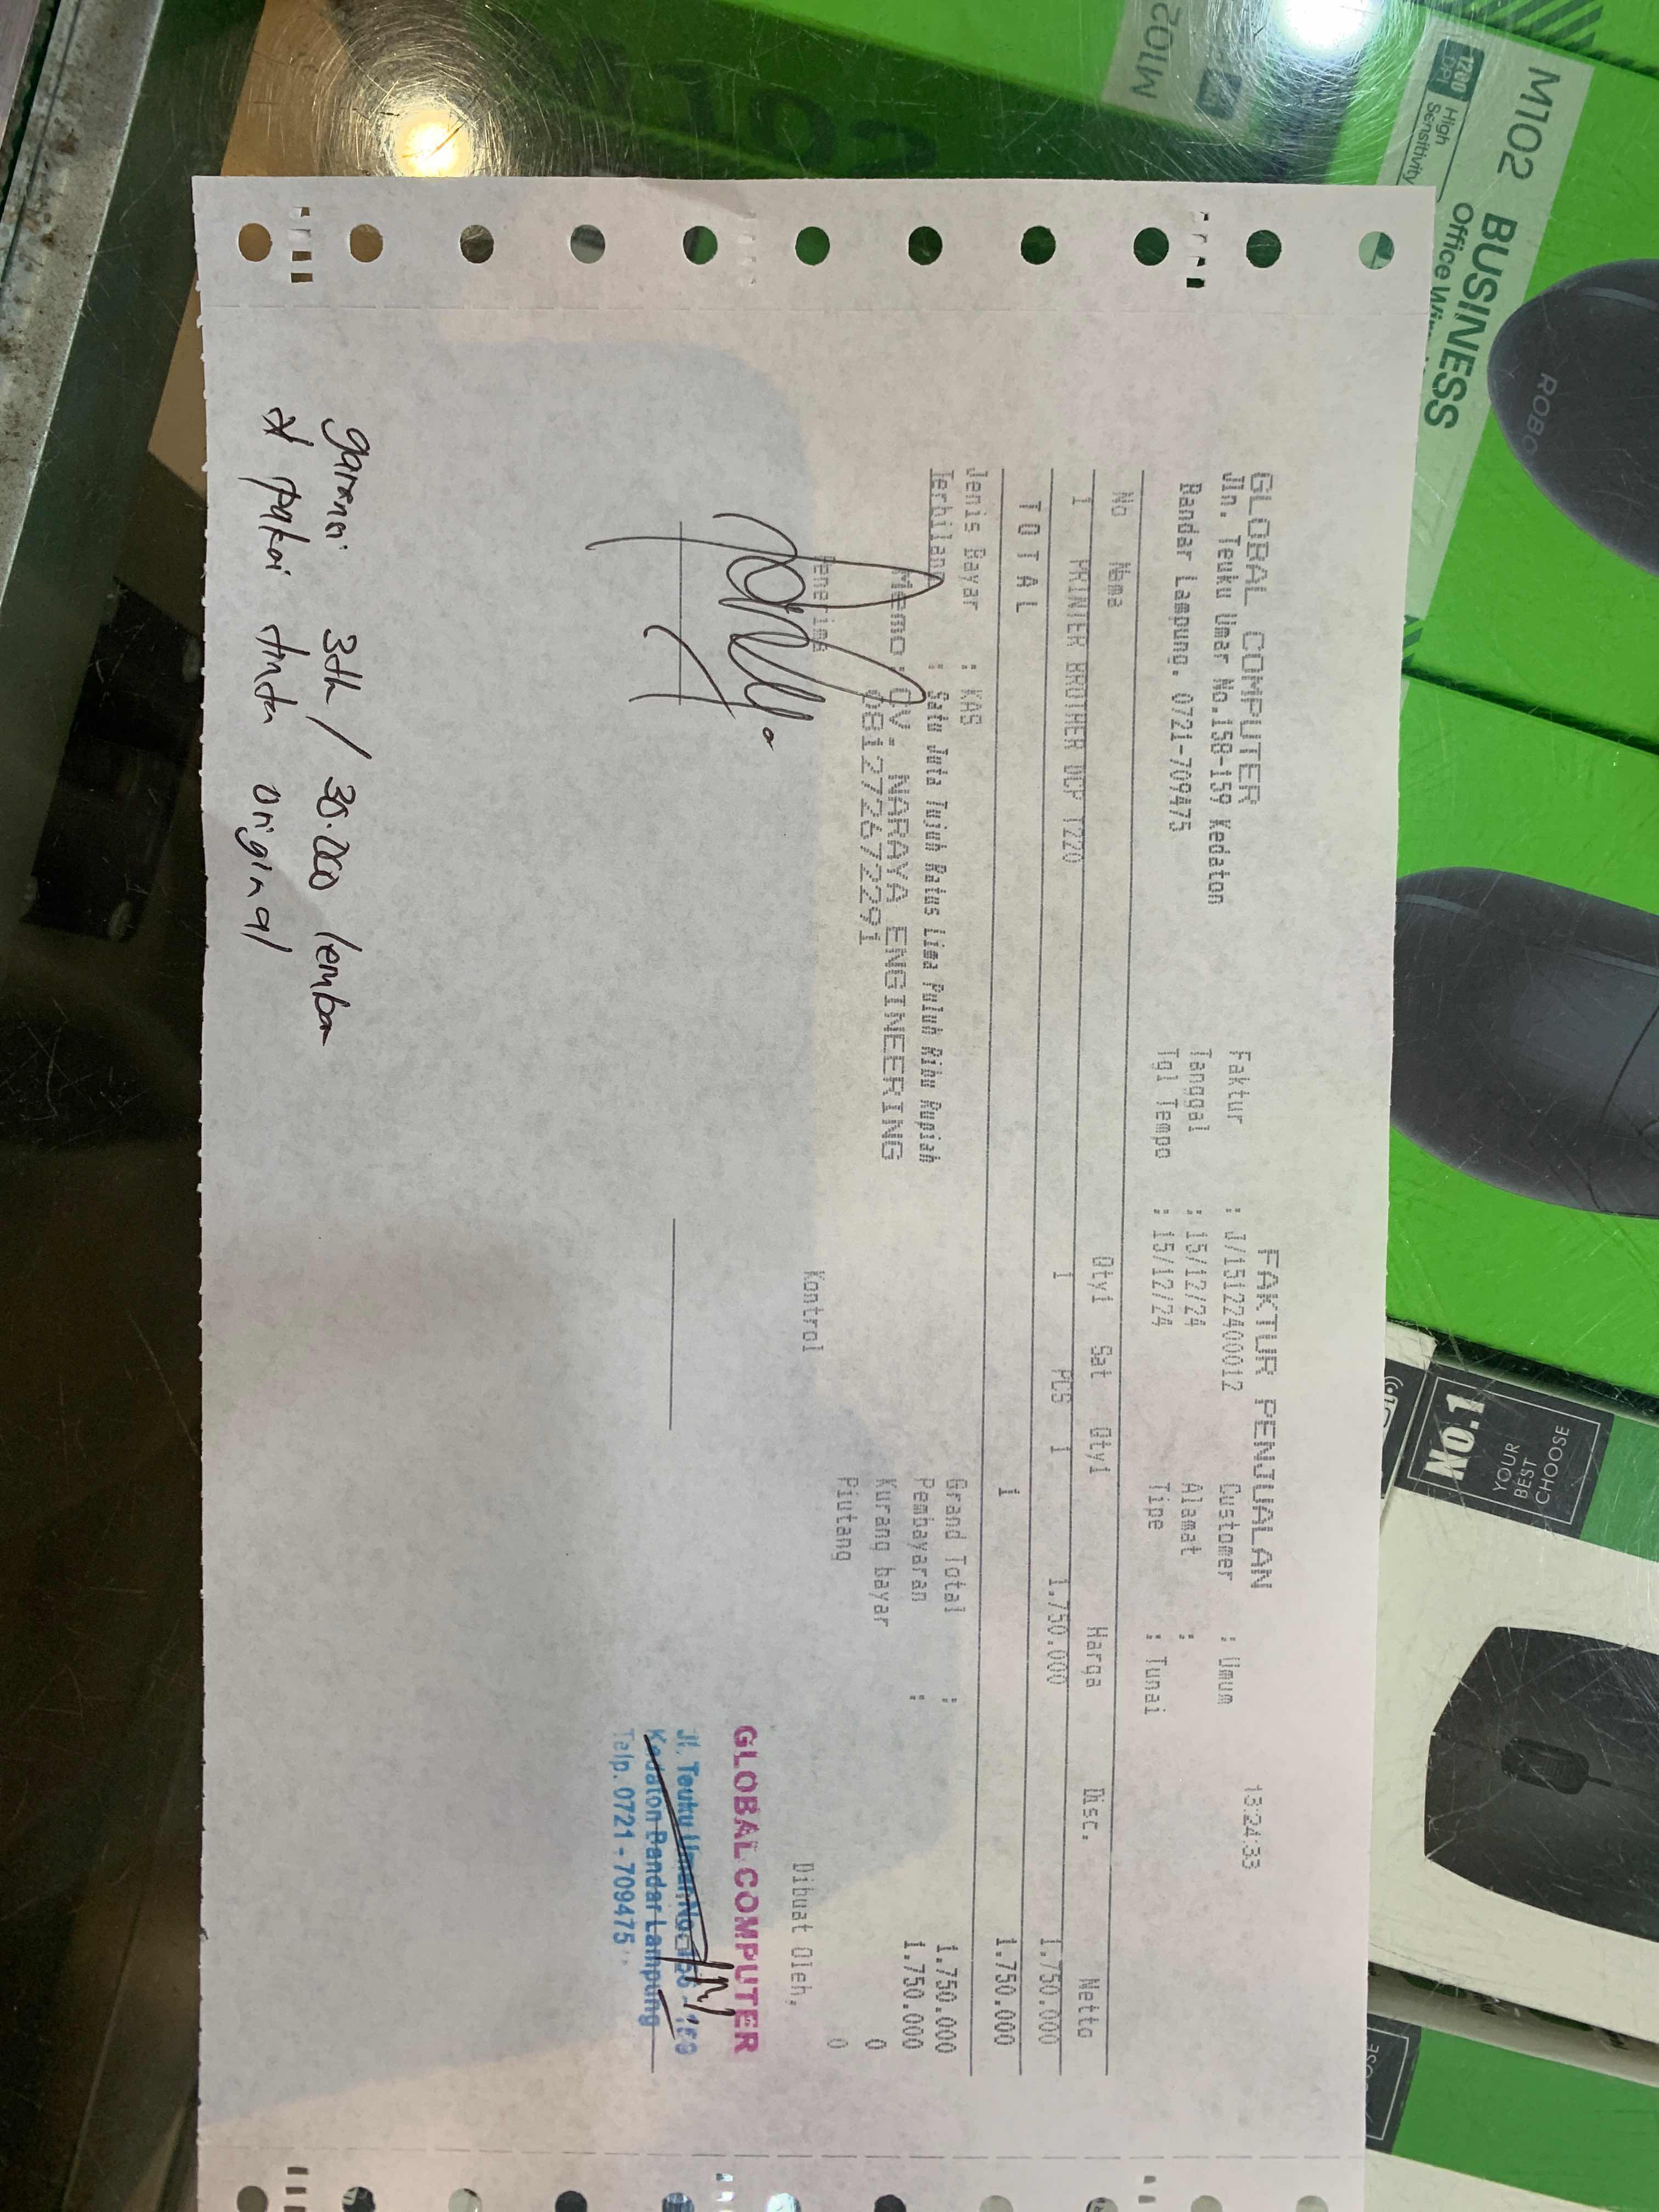 GLOBAL COMPUTER
Jln. Teuku Umar No.158-159 Kedaton
Bandar Lampung. 0721-709475
FAKTUR PENJUALAN
Faktur : J/1512240012
Tanggal : 15/12/24
Tgl Tempo : 15/12/24
Customer : Umum
Alamat :
Tipe : Tunai
No Nama Qty1 Sat Qty1 Harga Disc. Netto
1 PRINTER BROTHER DCP T220 1 PCS 1 1.750.000 1.750.000
T O T A L 1 1.750.000
Jenis Bayar : KAS
Terbilang : Satu Juta Tujuh Ratus Lima Puluh Ribu Rupiah
Memo: CV. NARAYA ENGINEERING
081272672291
Grand Total : 1.750.000
Pembayaran : 1.750.000
Kurang bayar 0
Piutang 0
Penerima
Kontrol
Dibuat Oleh,
GLOBAL COMPUTER
Jl. Teuku Umar No. 158 - 159
Kedaton Bandar Lampung
Telp. 0721 - 709475
garansi 3th / 30.000 lembar
* pakai tinta original
M102 BUSINESS
1200 DPI
High Sensitivity
Office
ROBO
M102
No.1
YOUR
BEST
CHOOSE